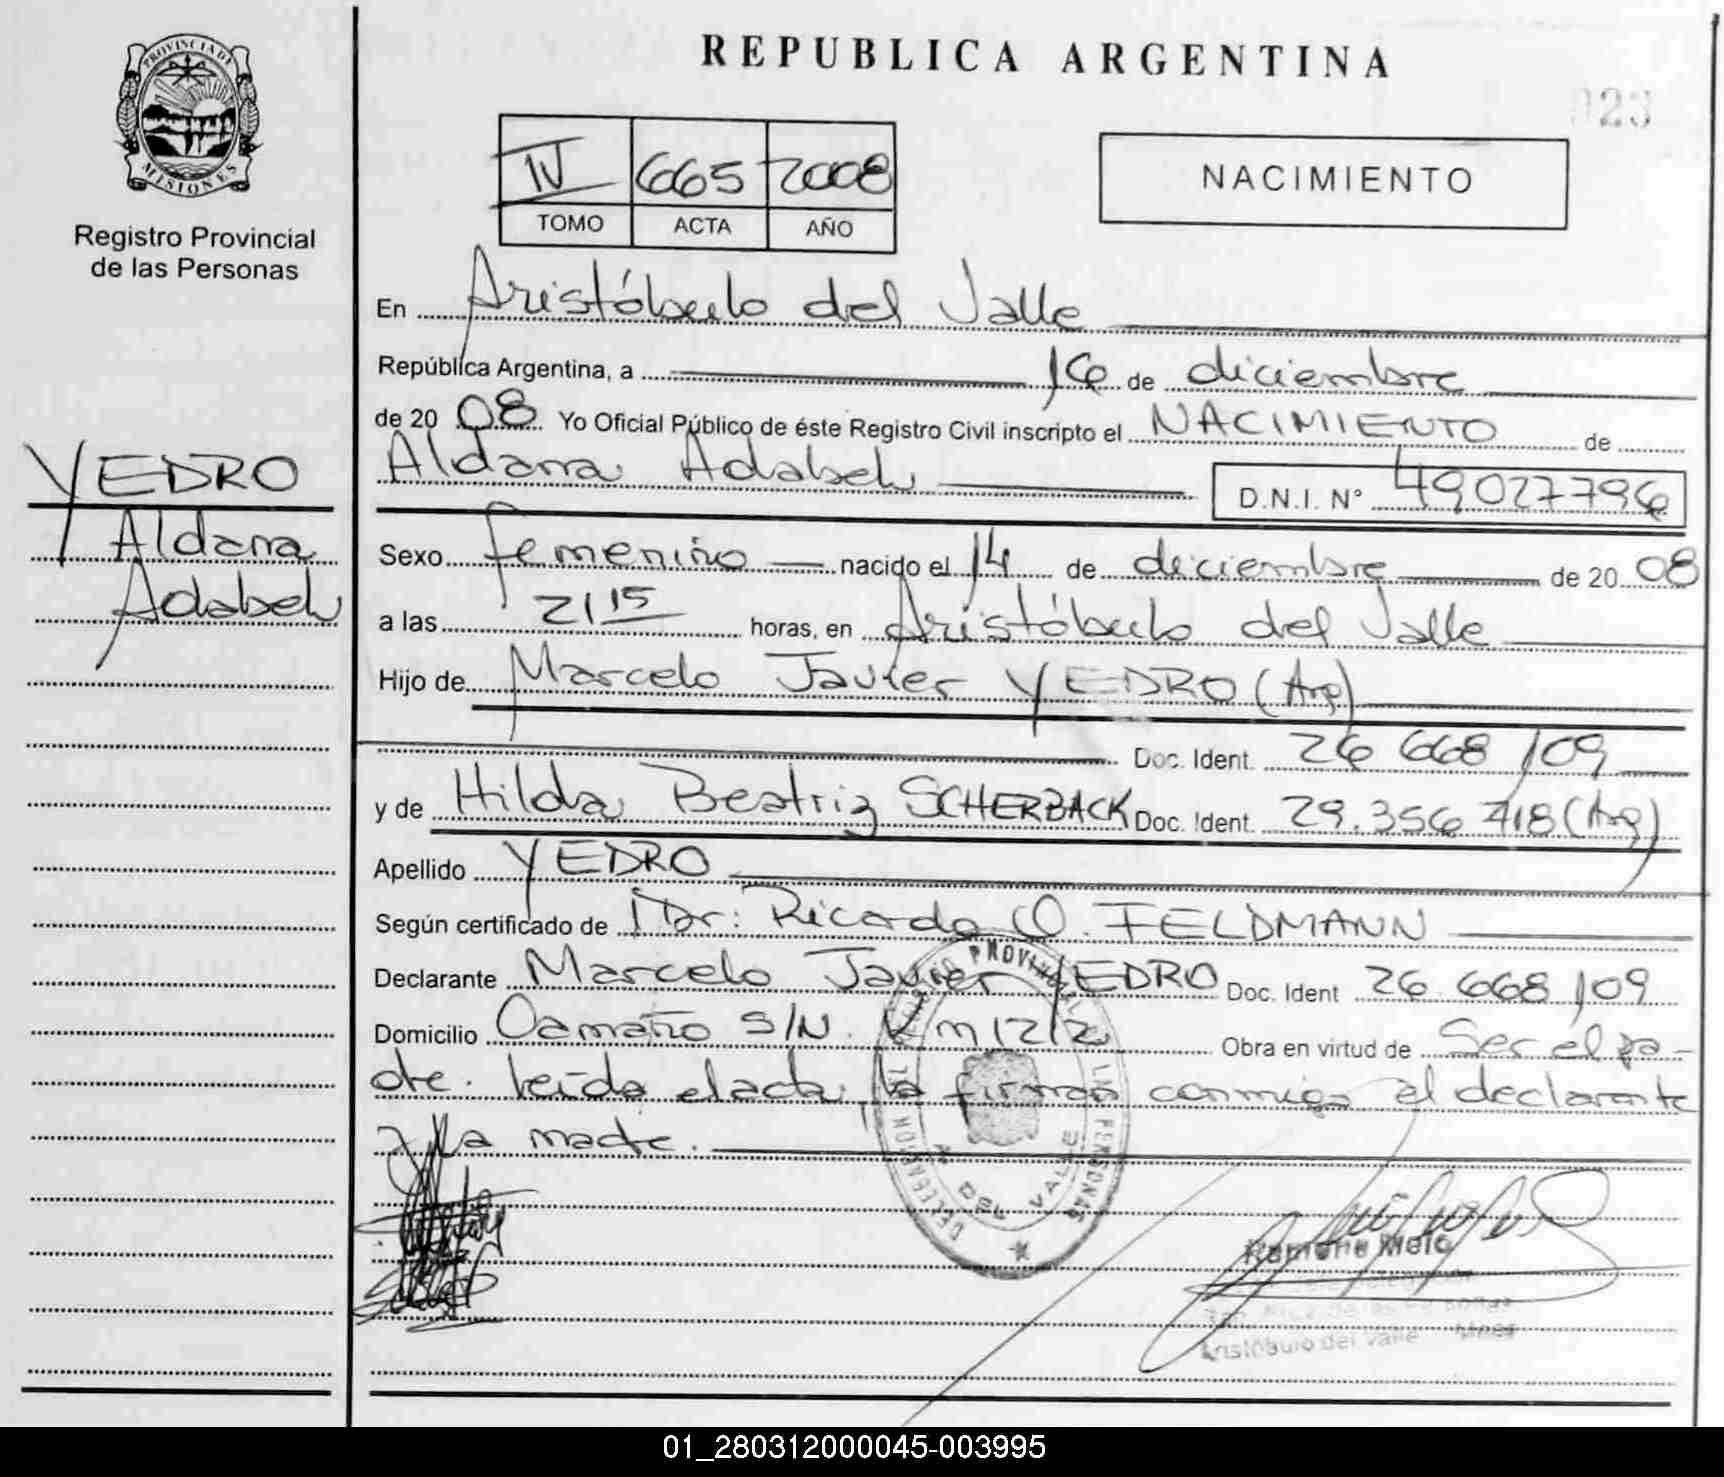 PROVINCIA DE
MISIONES
Registro Provincial
de las Personas
YEDRO
Aldana
Adabel
REPUBLICA ARGENTINA
023
IV 665 2008
TOMO ACTA AÑO
NACIMIENTO
En Aristóbulo del Valle
República Argentina, a 16 de diciembre
de 20 08 Yo Oficial Público de éste Registro Civil inscripto el NACIMIENTO de
Aldana Adabel D.N.I. Nº 49027796
Sexo femenino nacido el 14 de diciembre de 20 08
a las 21 15 horas, en Aristóbulo del Valle
Hijo de Marcelo Javier YEDRO (Arg)
Doc. Ident. 26 668 109
y de Hilda Beatriz SCHERBACK Doc. Ident. 29.356 718 (Arg)
Apellido YEDRO
Según certificado de Dr: Ricardo O. FELDMANN
Declarante Marcelo Javier YEDRO Doc. Ident 26 668 109
Domicilio Oamaño S/N. Km 1212 Obra en virtud de Ser el pa-
dre. leída el acta, la firman conmigo el declarante
y la madre.
Ramona Melo
Aristóbulo del Valle Mnes
01_280312000045-003995